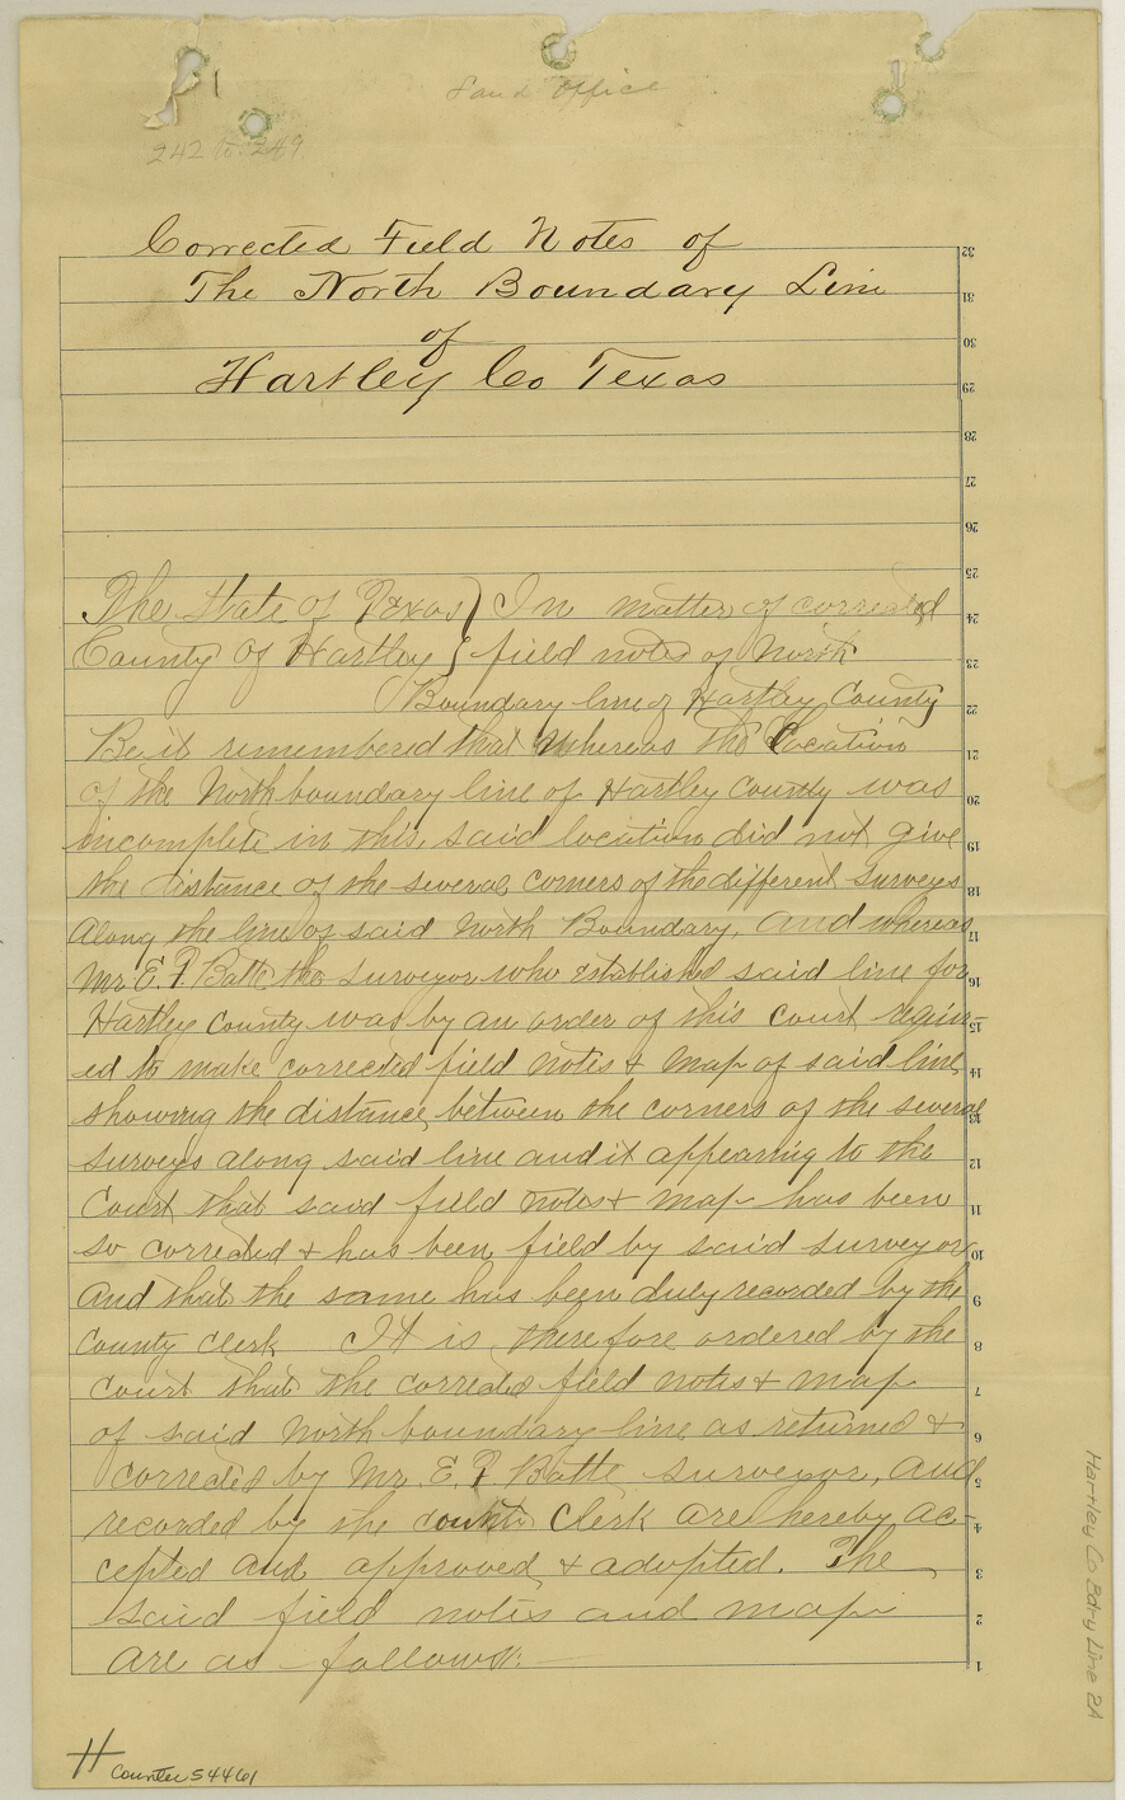 Land Office
242 to 249
Corrected Field Notes of
The North Boundary Line
of
Hartley Co Texas
The State of Texas } In matter of corrected
County of Hartley } field notes of North
Boundary line of Hartley County
Be it remembered that Whereas the Location
of the North boundary line of Hartley County was
incomplete in this, said location did not give
the distance of the several corners of the different surveys
along the line of said North Boundary, and whereas
Mr. E. P. Batte the surveyor who established said line for
Hartley County was by an order of this court requir-
ed to make corrected field notes & map of said line
showing the distance between the corners of the several
surveys along said line and it appearing to the
Court that said field notes & map has been
so corrected & has been field by said surveyor
and that the same has been duly recorded by the
County Clerk It is therefore ordered by the
Court that the corrected field notes & map
of said North boundary line as returned &
corrected by Mr. E. P. Batte surveyor, and
recorded by the county Clerk are hereby ac-
cepted and approved & adopted. The
said field notes and map
are as follows:
32
31
30
29
28
27
26
25
24
23
22
21
20
19
18
17
16
15
14
13
12
11
10
9
8
7
6
5
4
3
2
1
Hartley Co Bdry Line 2A
H
Counter 54461